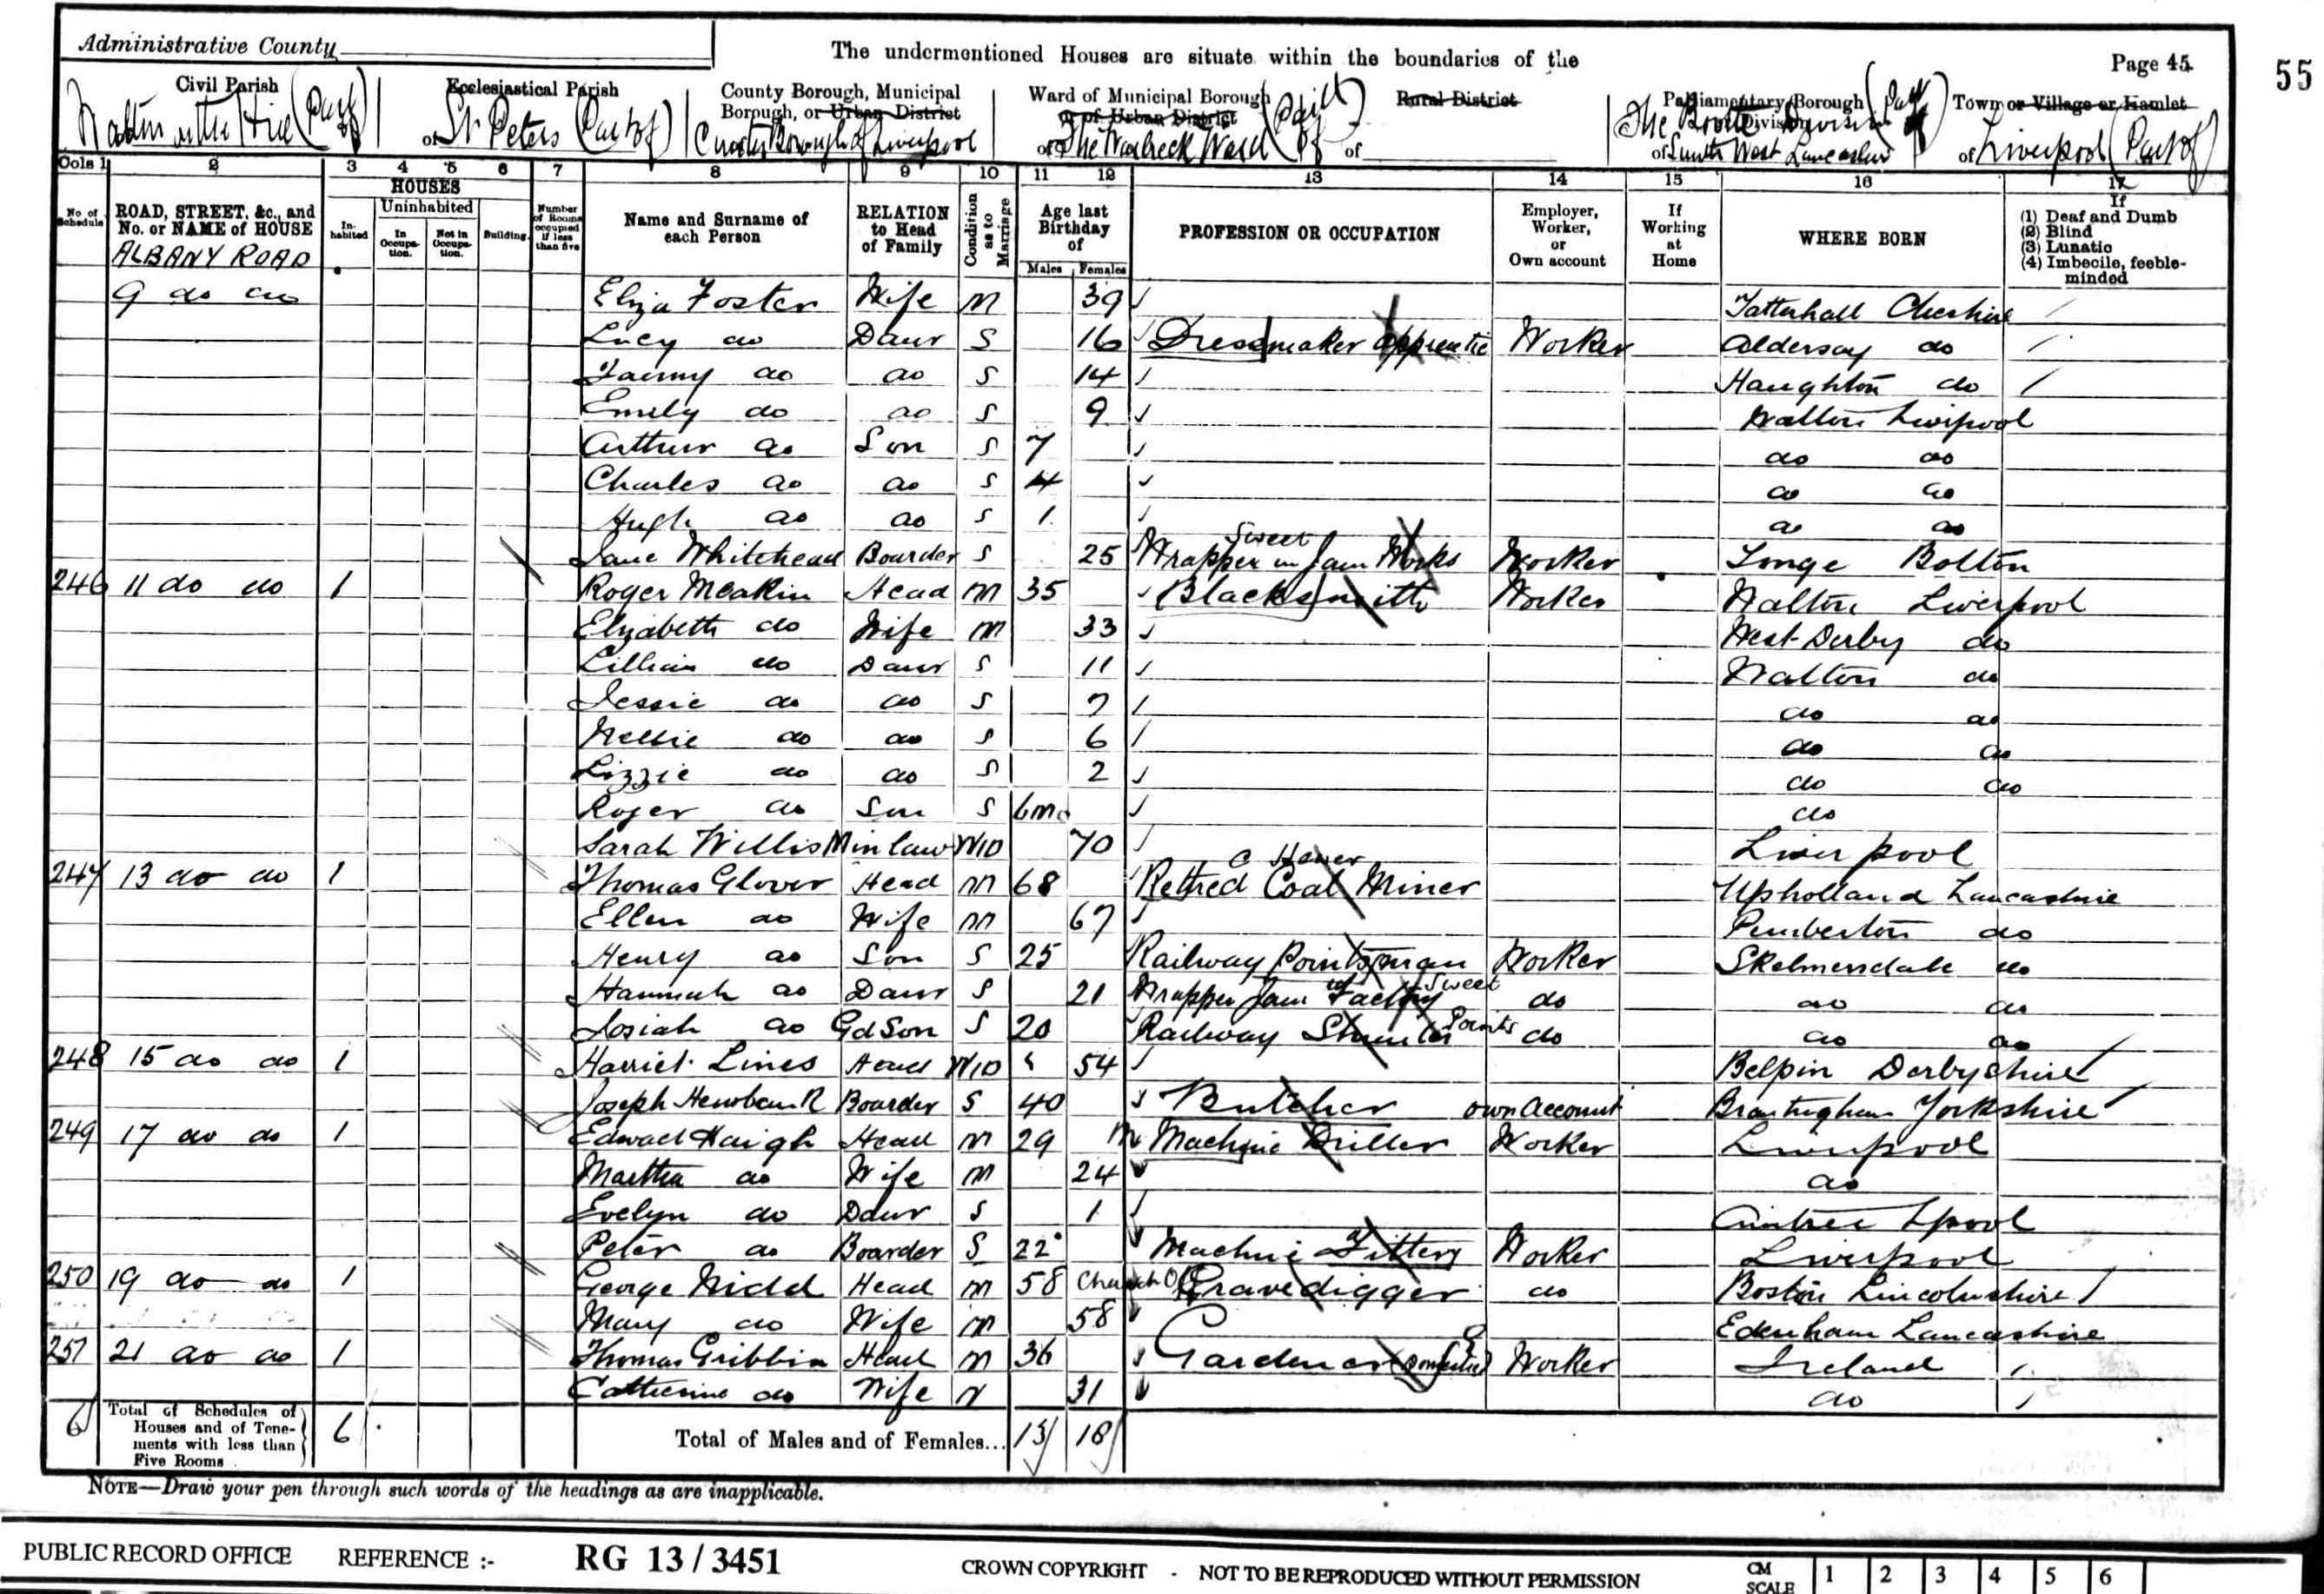 Administrative County
The undermentioned Houses are situate within the boundaries of the
Page 45
55
Civil Parish
Ecclesiastical Parish
County Borough, Municipal Borough, or Urban District
Ward of Municipal Borough or of Urban District
Rural District
Parliamentary Borough or Division
Town or Village or Hamlet
(Part of)
of St Peters (Part of)
County Borough of Liverpool
of The Warbreck Ward (Part of)
of
The Bootle Division (Part of) of South West Lancashire
of Liverpool (Part of)
Cols 1 2 3 4 5 6 7 8 9 10 11 12 13 14 15 16 17
No of Schedule
ROAD, STREET, &c., and No. or NAME of HOUSE
HOUSES
Inhabited
Uninhabited
In Occupation.
Not in Occupation.
Building.
Number of Rooms occupied if less than five
Name and Surname of each Person
RELATION to Head of Family
Condition as to Marriage
Age last Birthday of
Males Females
PROFESSION OR OCCUPATION
Employer, Worker, or Own account
If Working at Home
WHERE BORN
If
(1) Deaf and Dumb
(2) Blind
(3) Lunatic
(4) Imbecile, feeble-minded
ALBANY ROAD
9 do do Eliza Foster Wife M 39 Tattenhall Cheshire
Lucy do Daur S 16 Dressmaker Apprentice Worker Aldersay do
Fanny do do S 14 Haughton do
Emily do do S 9 Walton Liverpool
Arthur do Son S 7 do do
Charles do do S 4 do do
Hugh do do S 1 do do
Jane Whitehead Boarder S 25 Wrapper in Jam Works Sweet Worker Tonge Bolton
246 11 do do 1 Roger Meakin Head M 35 Blacksmith Worker Walton Liverpool
Elizabeth do Wife M 33 West Derby do
Lillian do Daur S 11 Walton do
Jessie do do S 7 do do
Nellie do do S 6 do do
Lizzie do do S 2 do do
Roger do Son S 6mo do
Sarah Willis M in law Wid 70 Liverpool
247 13 do do 1 Thomas Glover Head M 68 Retired Coal Miner C Hewer Upholland Lancashire
Ellen do Wife M 67 Pemberton do
Henry do Son S 25 Railway Pointsman Worker Skelmersdale do
Hannah do Daur S 21 Wrapper Jam Factory Sweet do do do
Josiah do Gd Son S 20 Railway Shunter Points do do do
248 15 do do 1 Harriet Lines Head Wid 54 Belpin Derbyshire
Joseph Boarder S 40 Butcher own account Brantingham Yorkshire
249 17 do do 1 Edward Haigh Head M 29 M Machine Driller Worker Liverpool
Martha do Wife M 24 do
Evelyn do Daur S 1 Aintree Lpool
Peter do Boarder S 22 Machine Fitter Worker Liverpool
250 19 do do 1 George Nidd Head M 58 Church Off Gravedigger do Boston Lincolnshire
Mary do Wife M 58 Edenham Lancashire
251 21 do do 1 Thomas Gribbin Head M 36 Gardener (Domestic) Worker Ireland
Catherine do Wife M 31 do
6 Total of Schedules of Houses and of Tenements with less than Five Rooms 6 Total of Males and of Females... 13 18
NOTE—Draw your pen through such words of the headings as are inapplicable.
PUBLIC RECORD OFFICE REFERENCE :- RG 13 / 3451 CROWN COPYRIGHT - NOT TO BE REPRODUCED WITHOUT PERMISSION CM SCALE 1 2 3 4 5 6